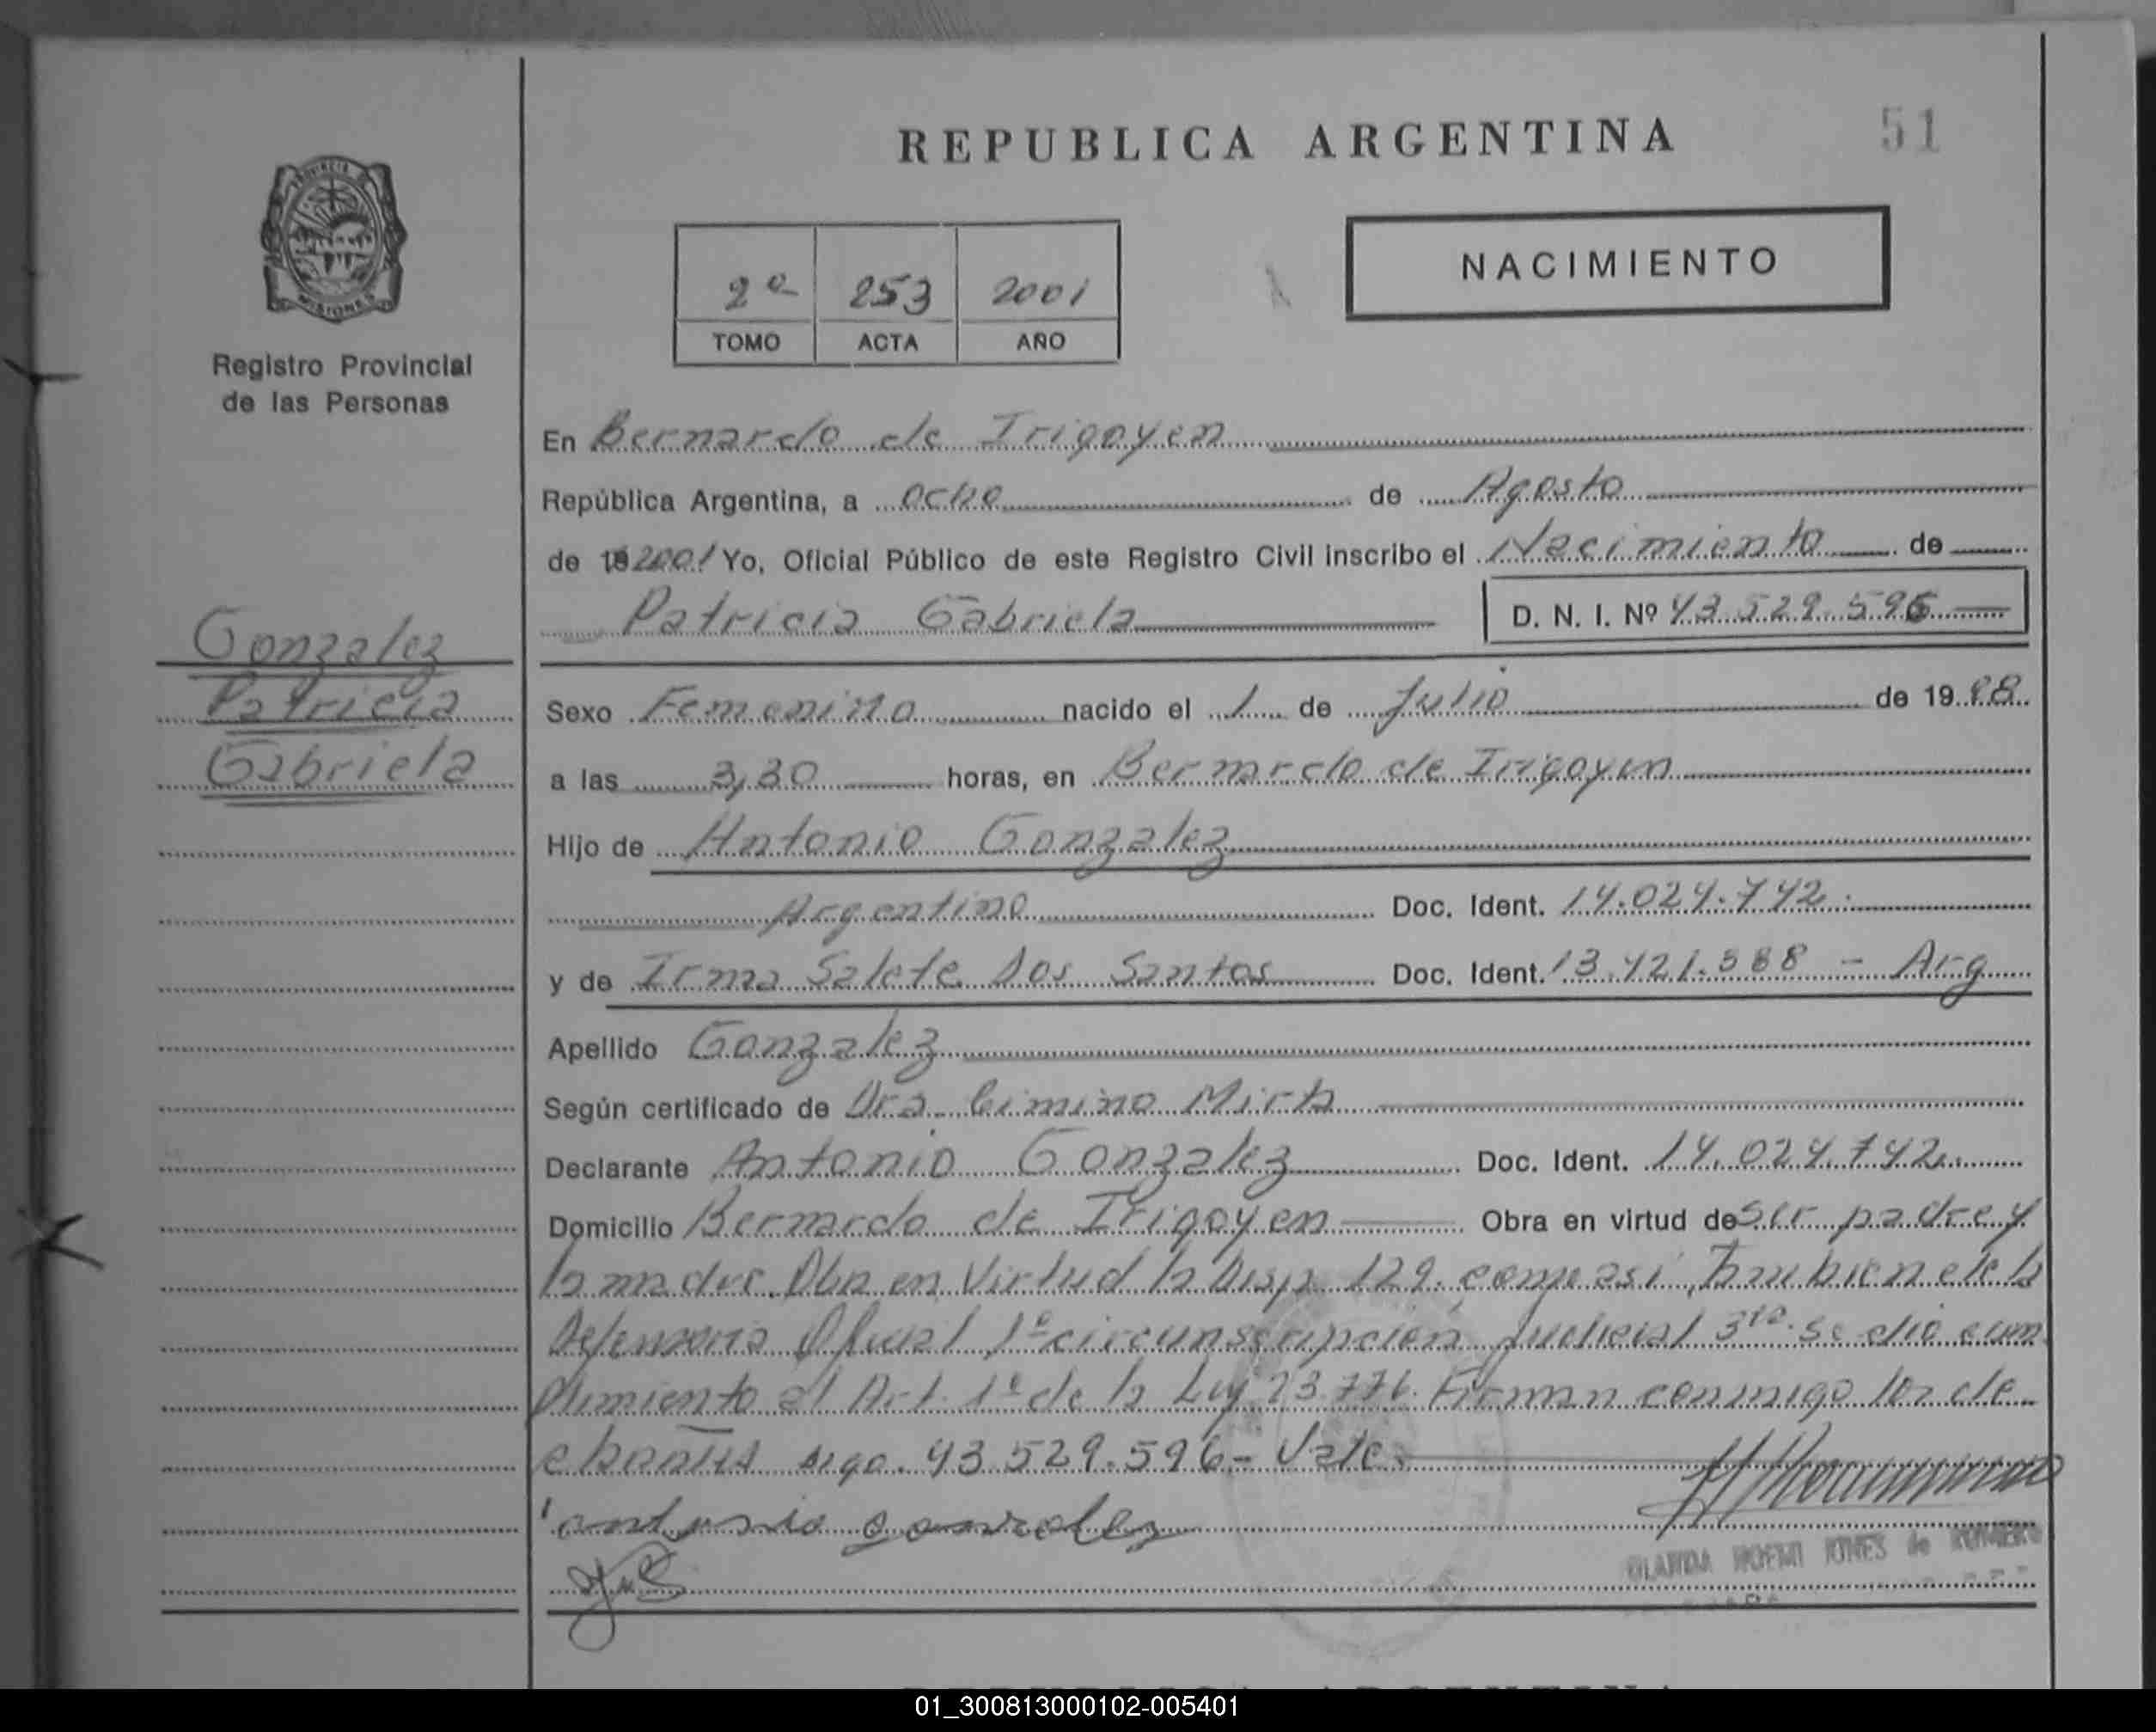 REPUBLICA ARGENTINA
51
PROVINCIA DE
MISIONES
Registro Provincial
de las Personas
2º 253 2001
TOMO ACTA AÑO
NACIMIENTO
En Bernardo de Irigoyen
República Argentina, a ocho de Agosto
de 19 2001 Yo, Oficial Público de este Registro Civil inscribo el Nacimiento de
Patricia Gabriela D. N. I. Nº 43.529.596
Gonzalez
Patricia
Gabriela
Sexo Femenino nacido el 1 de Julio de 19 98
a las 3,30 horas, en Bernardo de Irigoyen
Hijo de Antonio Gonzalez
Argentino Doc. Ident. 14.024.742.
y de Irma Salete Dos Santos Doc. Ident. 13.421.388 - Arg
Apellido Gonzalez
Según certificado de Dra. Cimino Mirta
Declarante Antonio Gonzalez Doc. Ident. 14.024.742
Domicilio Bernardo de Irigoyen Obra en virtud de ser padre y
la madre. Obra en Virtud la Disp. 129. como asi Tambien de la
Defensoria Oficial 1º circunscripción Judicial 3ra. se dio cum
plimiento al Art. 1º de la Ley 23.776. Firman conmigo los de
digo. 43.529.596 - Vale.
antonio gonzalez
NOEMI JONES de ROMERO
01_300813000102-005401